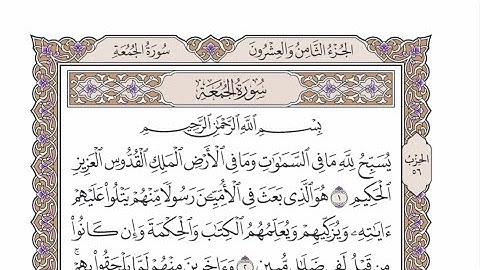 سُورَةُ الجُمُعَةِ
الجُزْءُ الثَّامِنُ وَالعِشْرُونَ
سُورَةُ الجُمُعَةِ
بِسْمِ اللَّهِ الرَّحْمَٰنِ الرَّحِيمِ
يُسَبِّحُ لِلَّهِ مَا فِي السَّمَٰوَٰتِ وَمَا فِي الْأَرْضِ الْمَلِكِ الْقُدُّوسِ الْعَزِيزِ
الْحَكِيمِ ١ هُوَ الَّذِي بَعَثَ فِي الْأُمِّيِّـۧنَ رَسُولًا مِّنْهُمْ يَتْلُوا۟ عَلَيْهِمْ
ءَايَٰتِهِۦ وَيُزَكِّيهِمْ وَيُعَلِّمُهُمُ الْكِتَٰبَ وَالْحِكْمَةَ وَإِن كَانُوا۟
مِن قَبْلُ لَفِي ضَلَٰلٍ مُّبِينٍ ٢ وَءَاخَرِينَ مِنْهُمْ لَمَّا يَلْحَقُوا۟ بِهِمْ ۚ
الحِزْبُ
٥٦